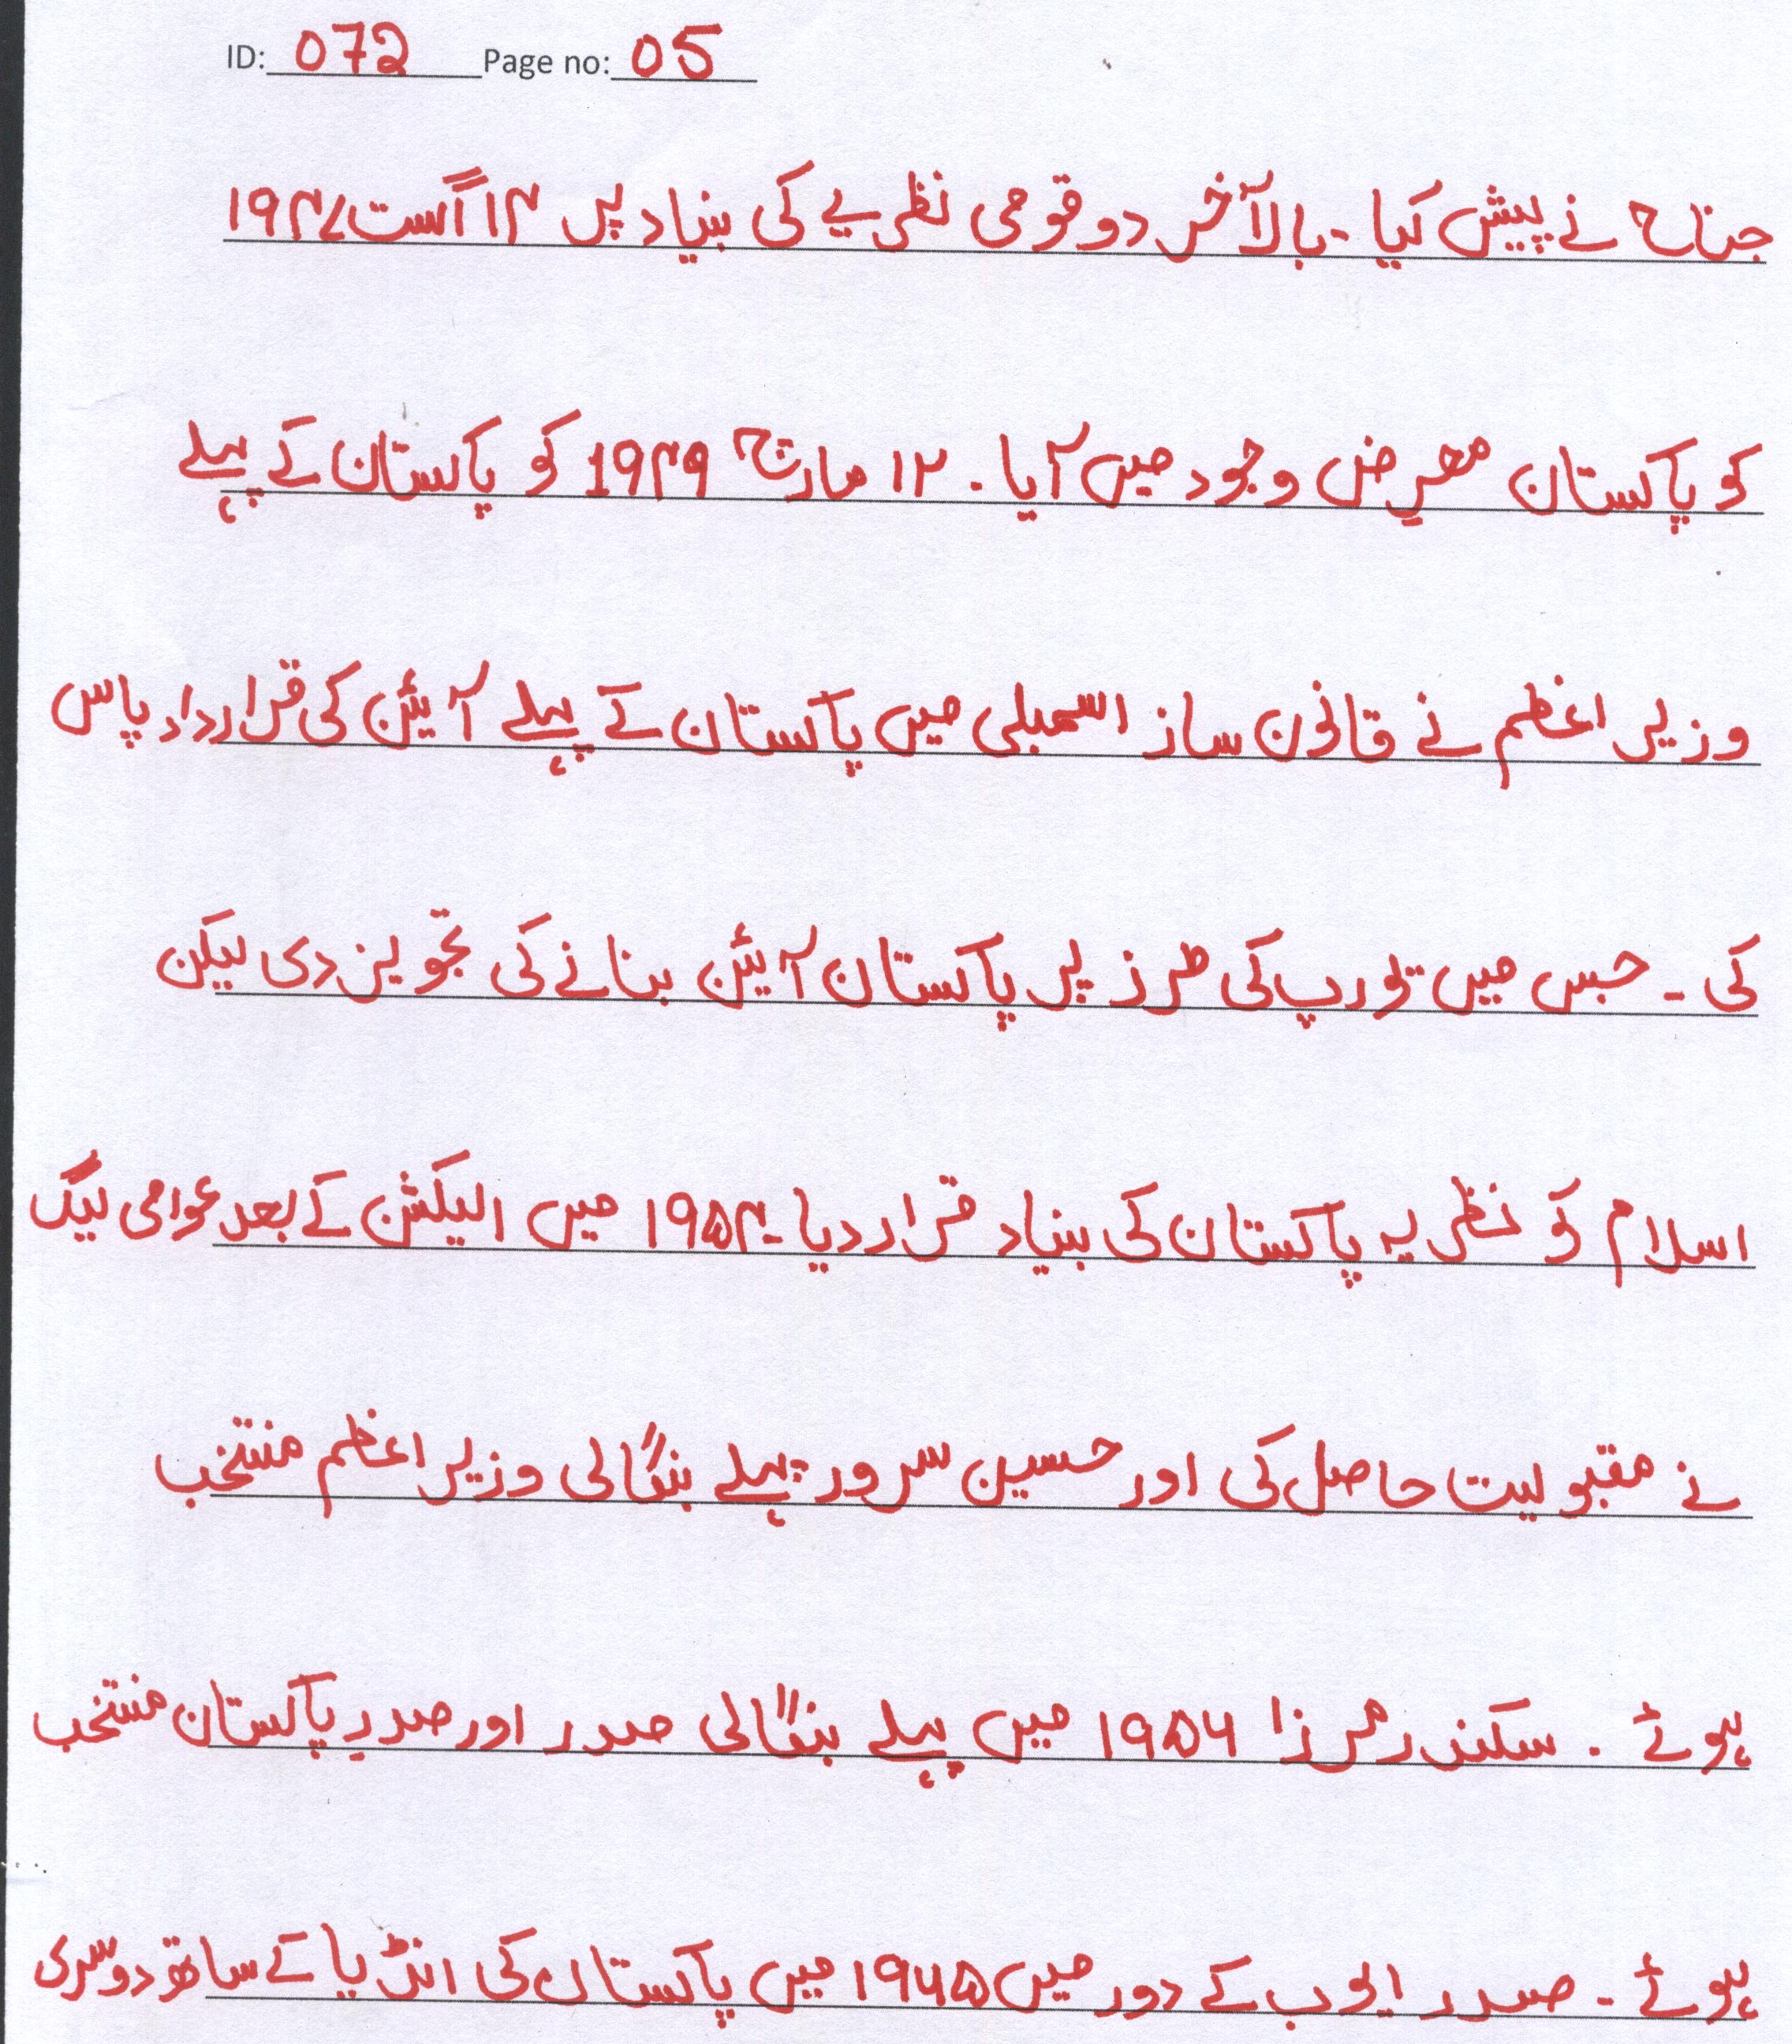 ID: 072 Page no: 05
جناح نے پیش کیا - بالآخر دو قومی نظریے کی بنیاد پر ۱۴ اگست ۱۹۴۷
کو پاکستان معرضِ وجود میں آیا . ۱۲ مارچ ۱۹۴۹ کو پاکستان کے پہلے
وزیر اعظم نے قانون ساز اسمبلی میں پاکستان کے پہلے آیئن کی قرارداد پاس
کی - جس میں یورپ کی طرز پر پاکستان آیئن بنانے کی تجویز دی لیکن
اسلام کو نظریہ پاکستان کی بنیاد قرار دیا - ۱۹۵۴ میں الیکشن کے بعد عوامی لیگ
نے مقبولیت حاصل کی اور حسین سرور پہلے بنگالی وزیر اعظم منتخب
ہوئے . سکندر مرزا ۱۹۵۶ میں پہلے بنگالی صدر اور صدرِ پاکستان منتخب
ہوئے - صدر ایوب کے دور میں ۱۹۶۵ میں پاکستان کی انڈیا کے ساتھ دوسری